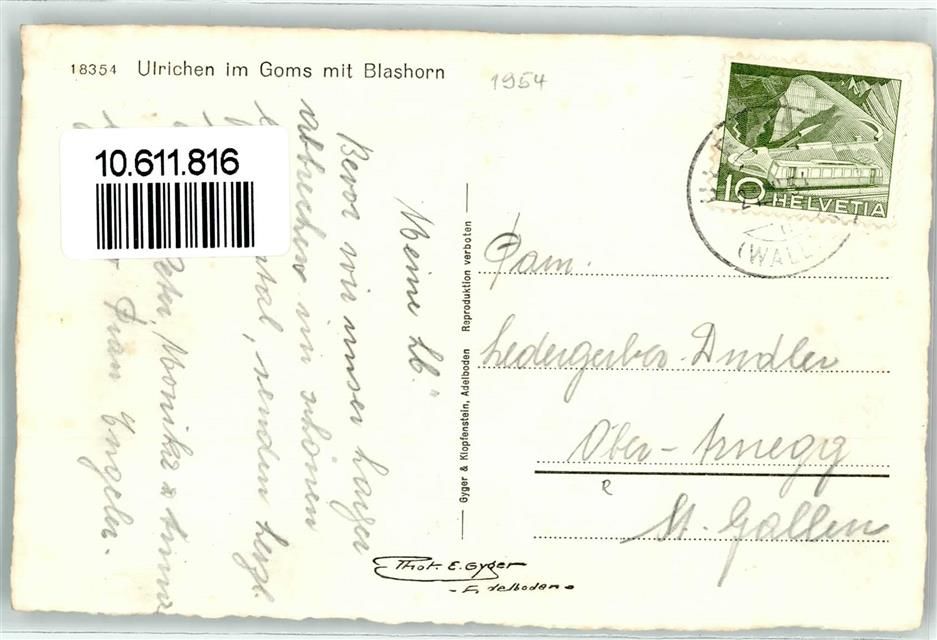 18354 Ulrichen im Goms mit Blashorn
1954
10.611.816
10 HELVETIA
(WALL
Meine Lb."
Bevor wir unser Lager
abbrechen im schönen
tal, senden herzl.
Peter, Monika &
Frau Engeler.
Gyger & Klopfenstein, Adelboden Reproduktion verboten
Fam.
Ledergerber-Dudler
Ober-Arnegg
St. Gallen
Phot. E. Gyger
Adelboden